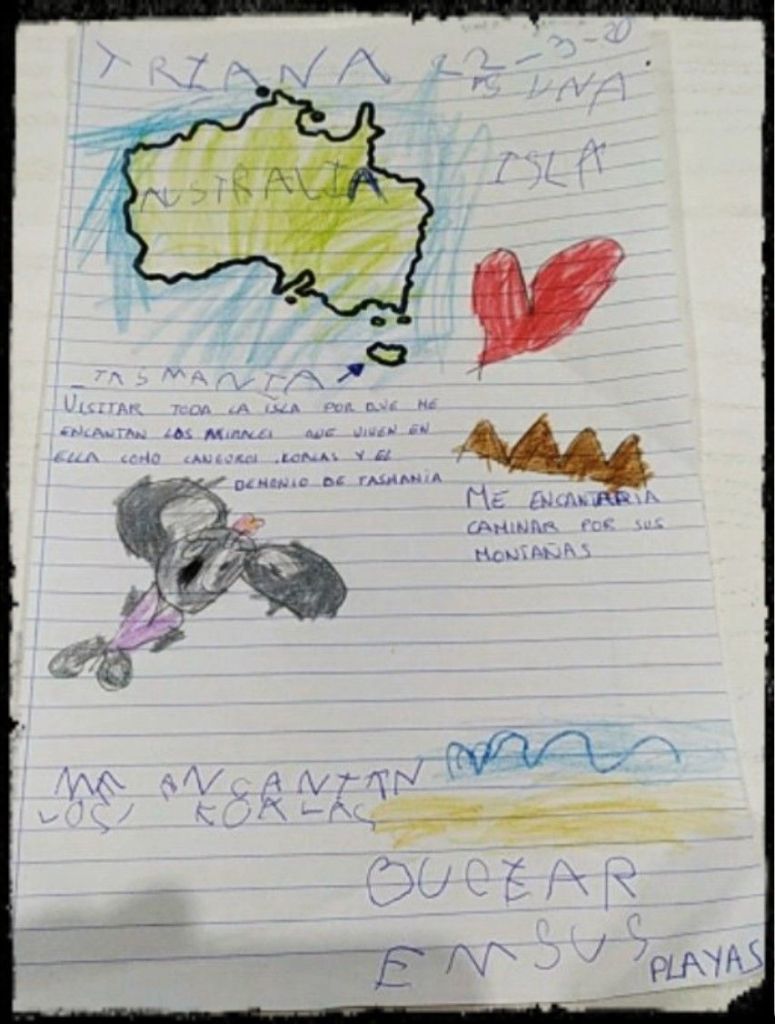 TRIANA 22-3-20
ES UNA
ISLA
AUSTRALIA
TASMANIA
VISITAR TODA LA ISLA POR QUE ME
ENCANTAN LOS ANIMALES QUE VIVEN EN
ELLA COMO CANGUROS, KOALAS Y EL
DEMONIO DE TASMANIA
ME ENCANTARIA
CAMINAR POR SUS
MONTAÑAS
ME ENCANTAN
LOS KOALAS
BUCEAR
EN SUS
PLAYAS